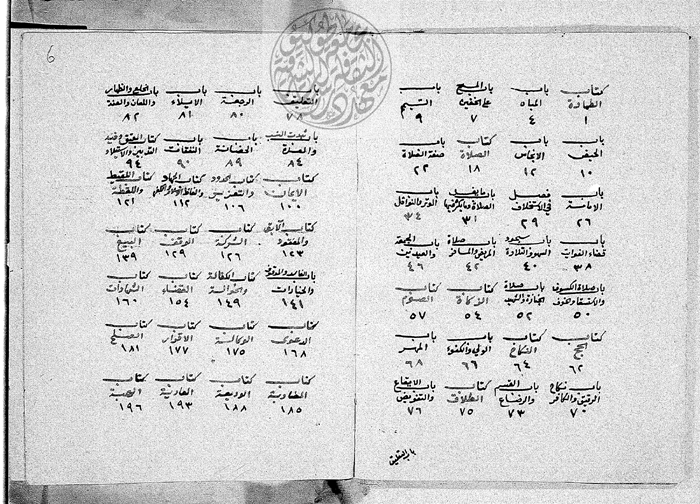 كتاب باب باب المسح باب
الطهارة المياه على الخفين التيمم
١ ٤ ٧ ٩
باب باب كتاب باب
الحيض الانجاس الصلاة صفة الصلاة
١٠ ١٢ ١٨ ٢٢
باب فصل باب ما يفسد باب
الامامة في الاستخلاف الصلاة وما يكره فيها الوتر والنوافل
٢٦ ٢٩ ٣١ ٣٤
باب باب سجود باب صلاة باب الجمعة
قضاء الفوائت السهو والتلاوة المريض والمسافر والعيدين
٣٨ ٤٠ ٤٢ ٤٦
باب صلاة الكسوف باب صلاة كتاب كتاب
وخوف الجنازة والشهيد الزكاة الصوم
٥٠ ٥٢ ٥٤ ٥٧
كتاب كتاب باب باب
الحج النكاح الولي والكفو المهر
٦٢ ٦٤ ٦٦ ٦٨
باب نكاح باب القسم كتاب باب الايقاع
الرقيق والكافر والرضاع الطلاق والتفويض
٧٠ ٧٣ ٧٥ ٧٦
باب التعليق
6
باب باب باب باب الخلع والظهار
التعليق الرجعة الايلاء واللعان والعنة
٧٨ ٨٠ ٨١ ٨٢
باب ثبوت النسب باب باب كتاب العتق
والعدة الحضانة النفقات التدبير والاستيلاد
٨٤ ٨٩ ٩٠ ٩٤
كتاب كتاب الحدود كتاب الجهاد كتاب اللقيط
الايمان والتعزير واللقطة
١٠٠ ١٠٦ ١١٢ ١٢١
كتاب الآبق كتاب كتاب كتاب
والمفقود الشركة الوقف البيع
١٢٣ ١٢٦ ١٢٩ ١٣٩
باب الفاسد كتاب الكفالة كتاب كتاب
والخيارات والحوالة القضاء الشهادات
١٤١ ١٤٩ ١٥٤ ١٦٠
كتاب كتاب كتاب كتاب
الدعوى الوكالة الاقرار الصلح
١٦٨ ١٧٥ ١٧٧ ١٨١
كتاب كتاب كتاب كتاب
المضاربة الوديعة العارية الهبة
١٨٥ ١٨٨ ١٩٣ ١٩٦